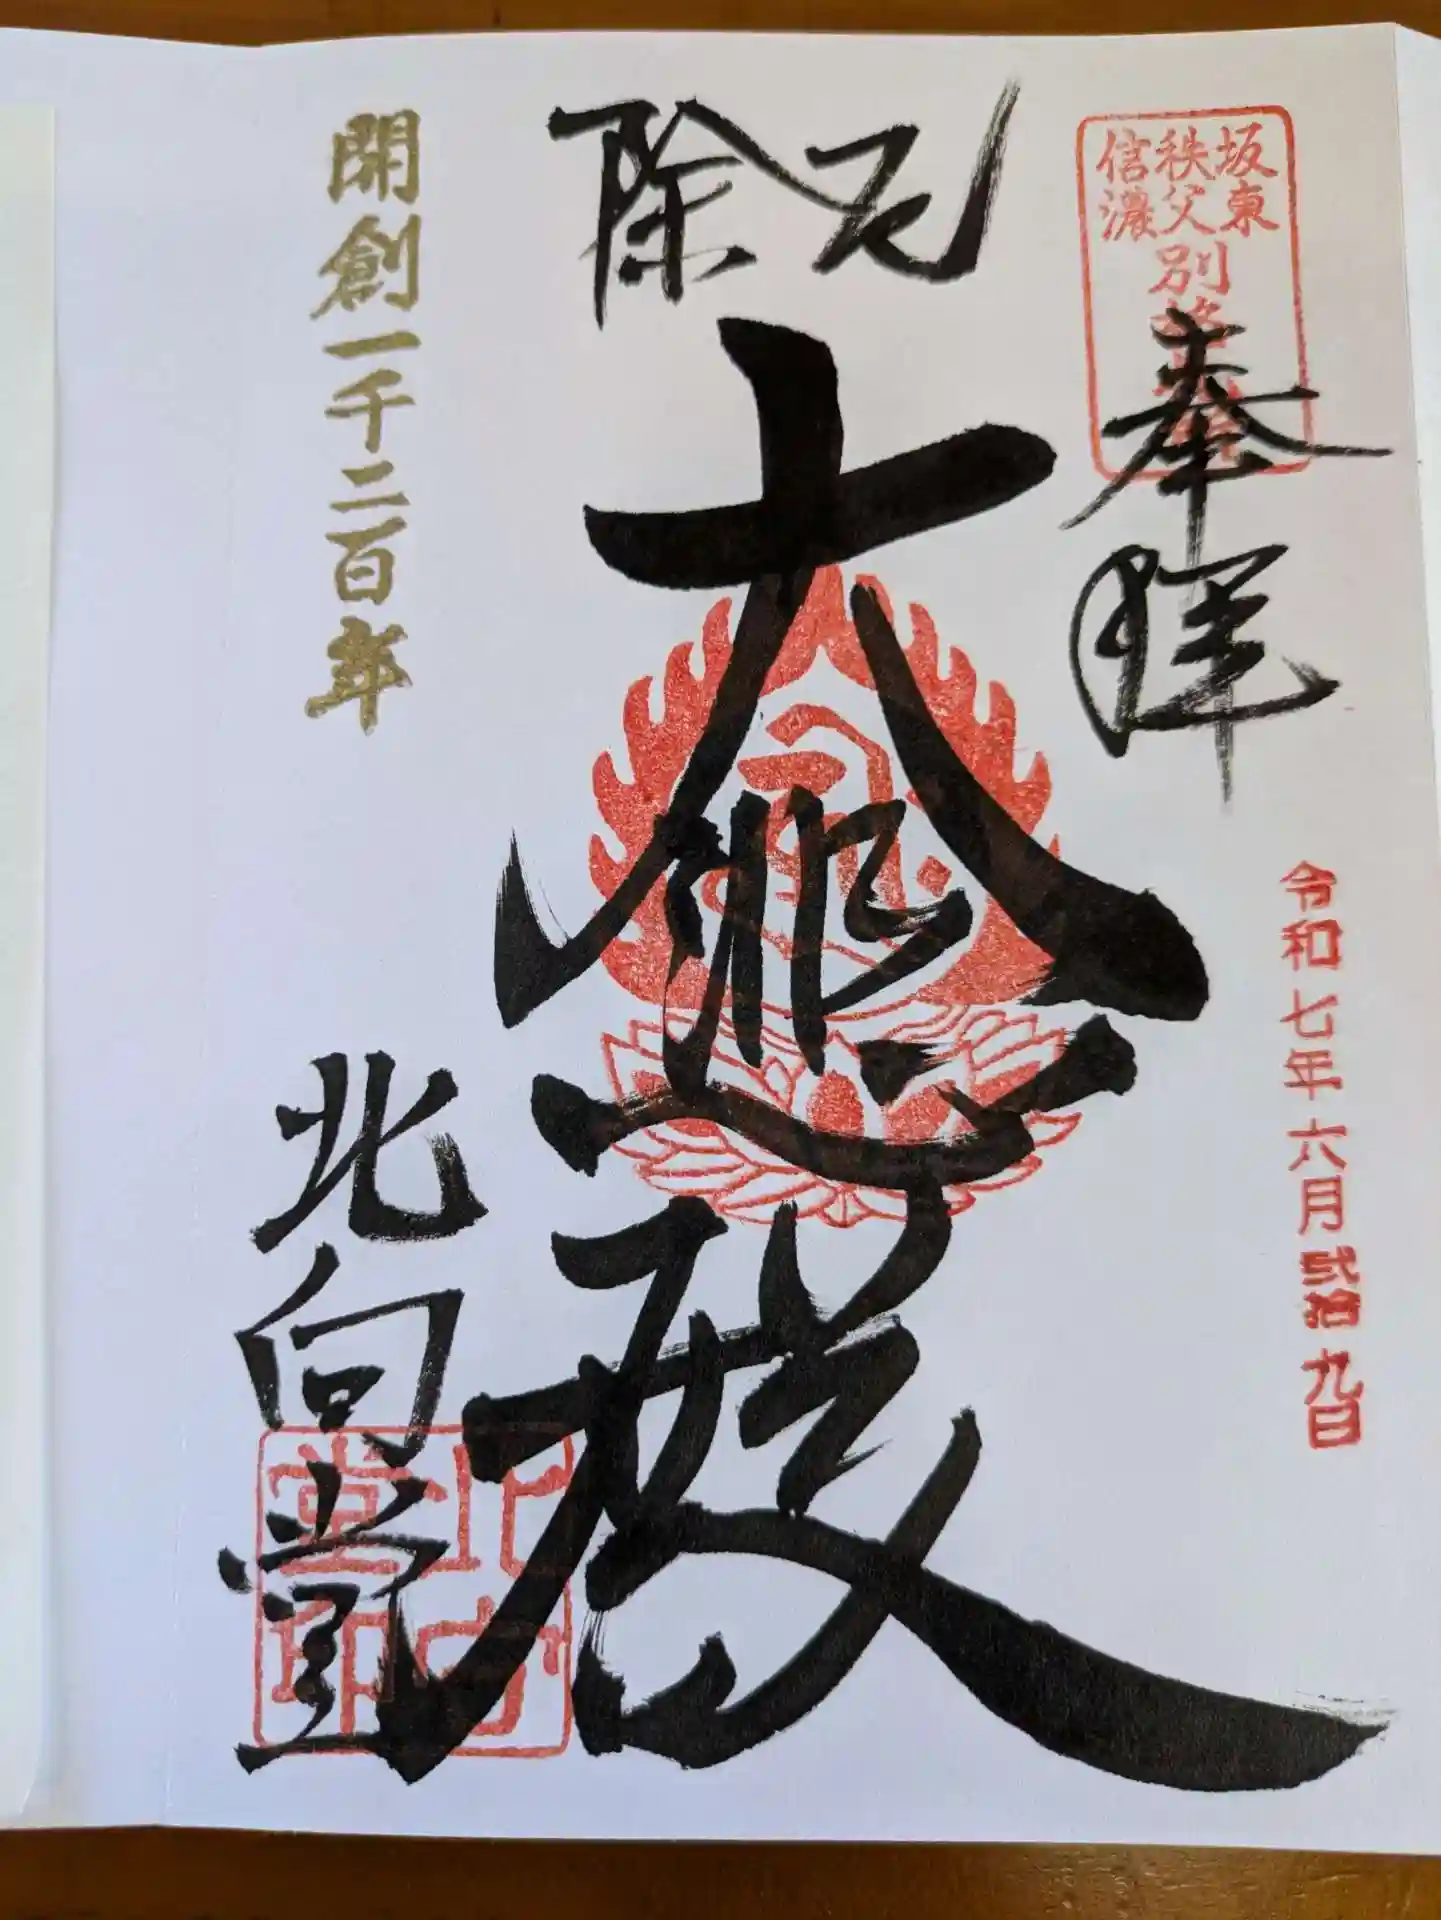 坂東
秩父
信濃
別格
奉拝
令和七年六月弐拾九日
厄除
大悲殿
開創一千二百年
北向堂